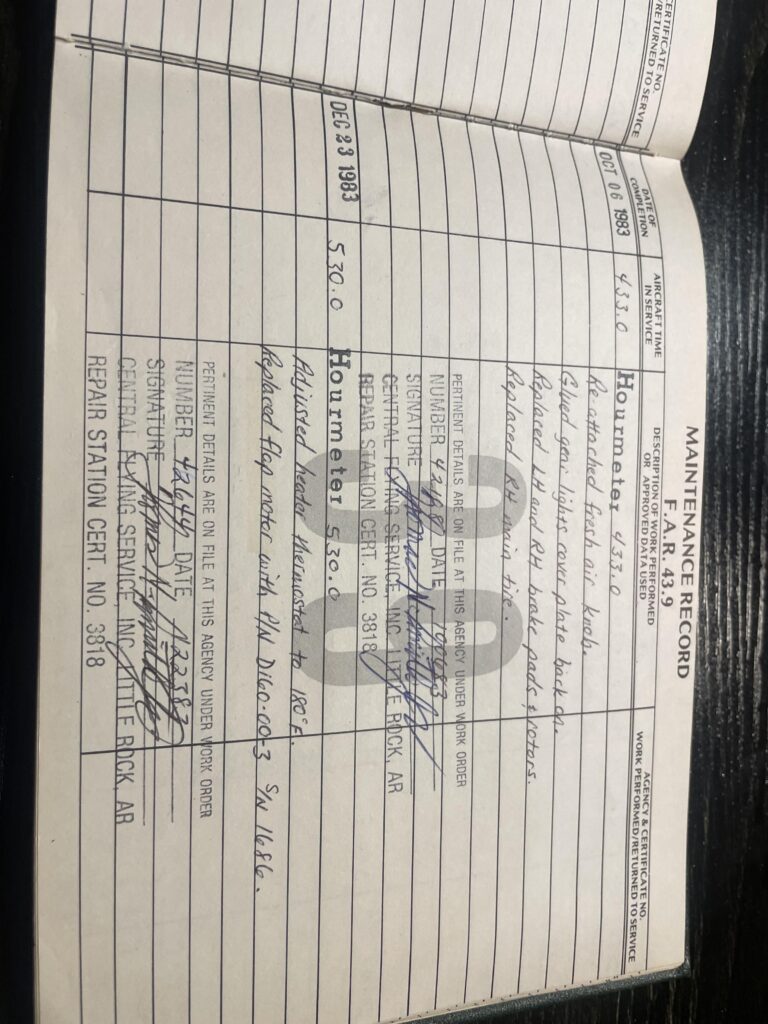 CERTIFICATE NO.
/RETURNED TO SERVICE
MAINTENANCE RECORD
F.A.R. 43.9
DATE OF COMPLETION
AIRCRAFT TIME IN SERVICE
DESCRIPTION OF WORK PERFORMED OR APPROVED DATA USED
AGENCY & CERTIFICATE NO. WORK PERFORMED/RETURNED TO SERVICE
OCT 06 1983 433.0 Hourmeter 433.0
Re-attached fresh air knob.
Glued gear lights cover plate back on.
Replaced LH and RH brake pads & rotors.
Replaced RH main tire.
PERTINENT DETAILS ARE ON FILE AT THIS AGENCY UNDER WORK ORDER
NUMBER DATE 100683
SIGNATURE
CENTRAL FLYING SERVICE, INC. LITTLE ROCK, AR
REPAIR STATION CERT. NO. 3818
DEC 23 1983 530.0 Hourmeter 530.0
Adjusted heater thermostat to 180°F.
Replaced flap motor with P/N D160-00-3 S/N 1686.
PERTINENT DETAILS ARE ON FILE AT THIS AGENCY UNDER WORK ORDER
NUMBER 42644 DATE
SIGNATURE
CENTRAL FLYING SERVICE, INC. LITTLE ROCK, AR
REPAIR STATION CERT. NO. 3818